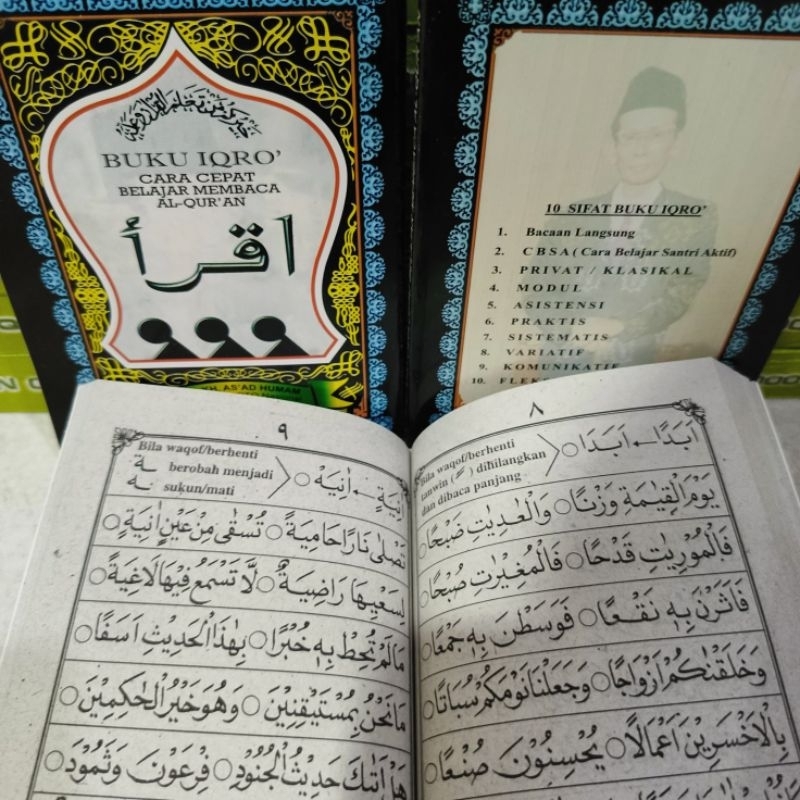 خيركم من تعلم القرآن وعلمه
BUKU IQRO'
CARA CEPAT
BELAJAR MEMBACA
AL-QUR'AN
اقرأ
KH. AS'AD HUMAM
10 SIFAT BUKU IQRO'
1. Bacaan Langsung
2. CBSA ( Cara Belajar Santri Aktif)
3. PRIVAT / KLASIKAL
4. MODUL
5. ASISTENSI
6. PRAKTIS
7. SISTEMATIS
8. VARIATIF
9. KOMUNIKATIF
10.
٨
اَبَدًا ← اَبَدَا
Bila waqof/berhenti
tanwin (ـً) dihilangkan
dan dibaca panjang
يَوْمَ الْقِيٰمَةِ وَزْنًا ○ وَالْعٰدِيٰتِ ضَبْحًا ○
فَالْمُوْرِيٰتِ قَدْحًا ○ فَالْمُغِيْرٰتِ صُبْحًا ○
فَاَثَرْنَ بِهٖ نَقْعًا ○ فَوَسَطْنَ بِهٖ جَمْعًا ○
وَخَلَقْنٰكُمْ اَزْوَاجًا ○ وَجَعَلْنَا نَوْمَكُمْ سُبَاتًا ○
بِالْاَخْسَرِيْنَ اَعْمَالًا ○ يُحْسِنُوْنَ صُنْعًا ○
٩
اٰنِيَةٍ ← اٰنِيَهْ ○
Bila waqof/berhenti
ـة berobah menjadi
ـه sukun/mati
تَصْلٰى نَارًا حَامِيَةً ○ تُسْقٰى مِنْ عَيْنٍ اٰنِيَةٍ ○
لِسَعْيِهَا رَاضِيَةٌ ○ لَا تَسْمَعُ فِيْهَا لَاغِيَةً ○
مَالَمْ تُحِطْ بِهٖ خُبْرًا ○ بِهٰذَا الْحَدِيْثِ اَسَفًا ○
مَانَحْنُ بِمُسْتَيْقِنِيْنَ ○ وَهُوَ خَيْرُ الْحٰكِمِيْنَ ○
هَلْ اَتٰىكَ حَدِيْثُ الْجُنُوْدِ ○ فِرْعَوْنَ وَثَمُوْدَ ○